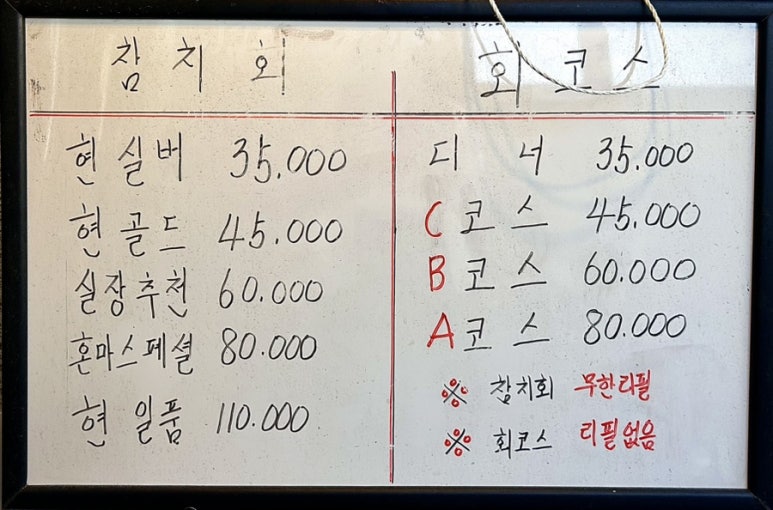 참치회
현실버 35.000
현골드 45.000
실장추천 60.000
혼마스페셜 80.000
현일품 110.000
회코스
디너 35.000
C코스 45.000
B코스 60.000
A코스 80.000
※ 참치회 무한리필
※ 회코스 리필없음